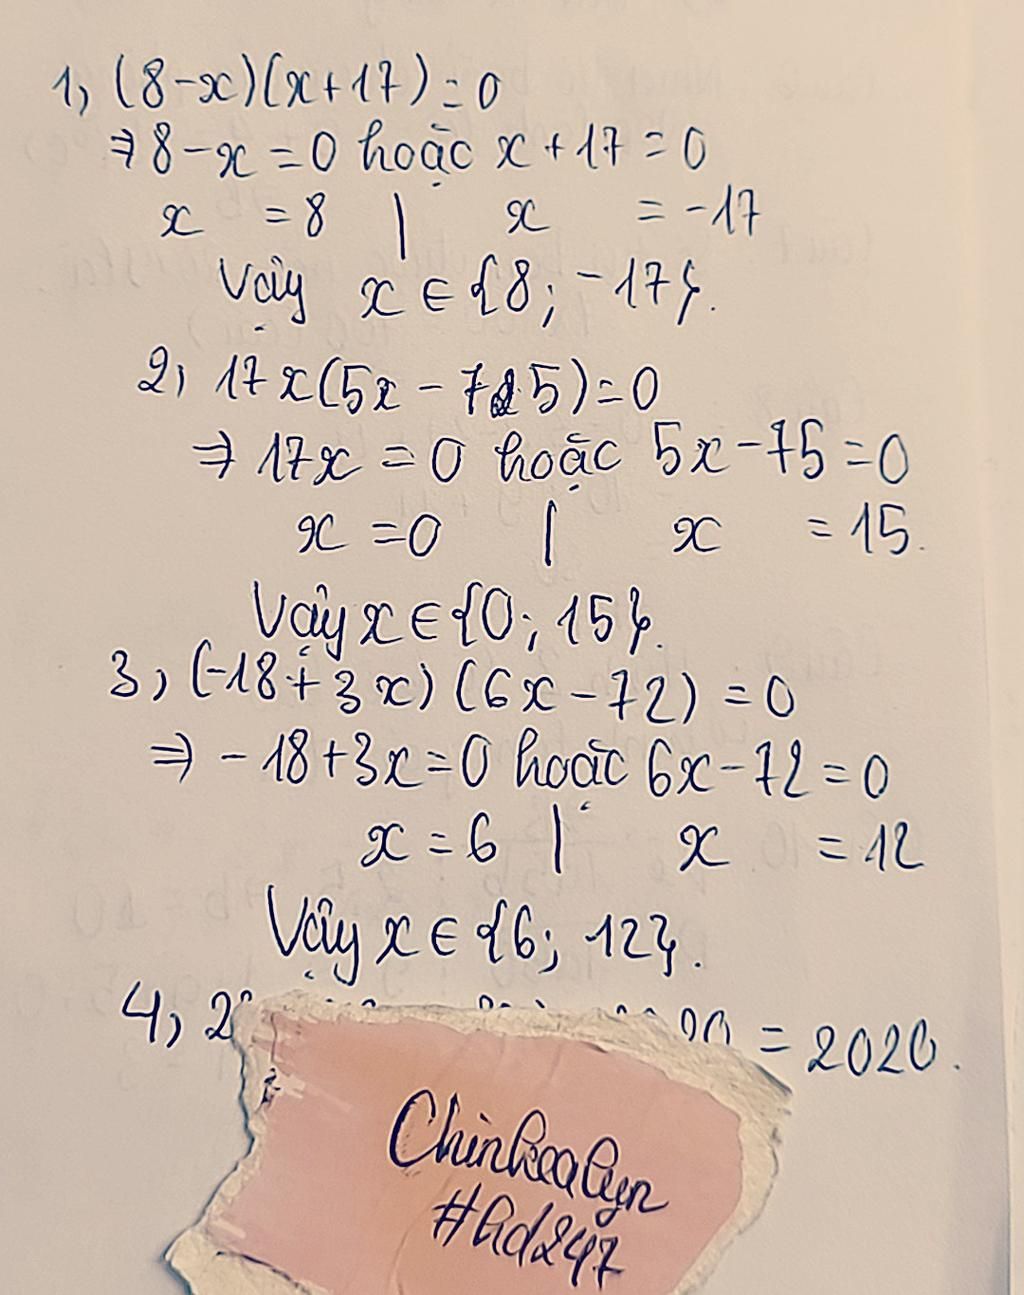 1, (8-x)(x+17)=0
⇒ 8-x=0 hoặc x+17=0
x =8 | x =-17
Vậy x ∈ {8; -17}.
2, 17x(5x-75)=0
⇒ 17x=0 hoặc 5x-75=0
x=0 | x =15.
Vậy x ∈ {0; 15}.
3, (-18+3x)(6x-72)=0
⇒ -18+3x=0 hoặc 6x-72=0
x=6 | x =12
Vậy x ∈ {6; 12}.
4, = 2020.
#hd247